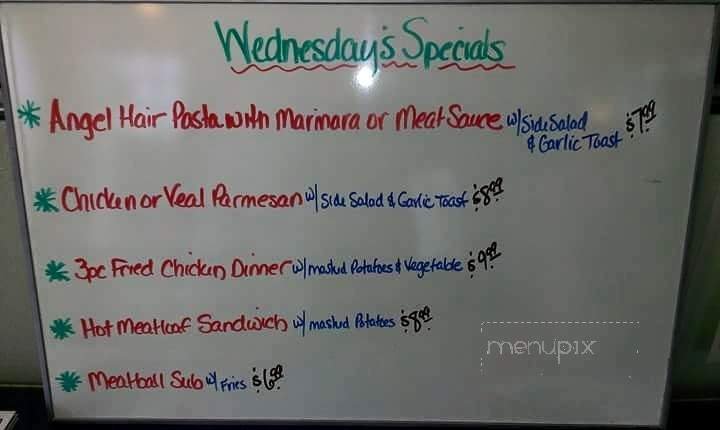 Wednesday's Specials
Angel Hair Pasta with Marinara or Meat Sauce w/ Side Salad $7.99
& Garlic Toast
Chicken or Veal Parmesan w/ Side Salad & Garlic Toast $8.99
3pc Fried Chicken Dinner w/ mashed Potatoes & Vegetable $9.99
Hot Meatloaf Sandwich w/ mashed Potatoes $8.99
menupix
Meatball Sub w/ Fries $6.99